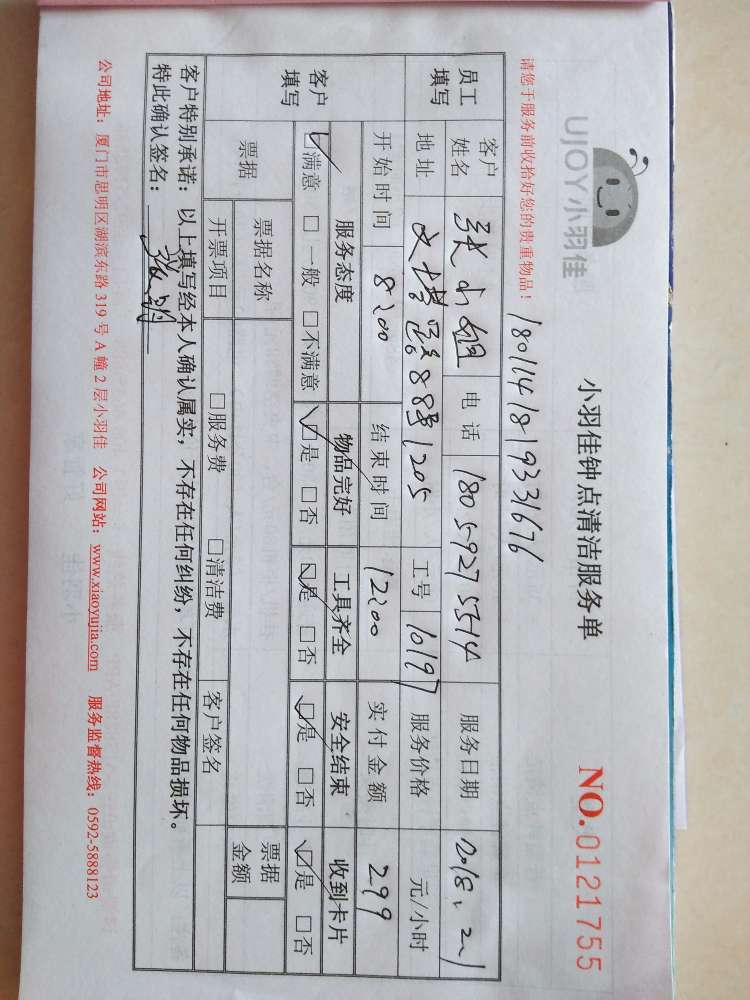 UJOY小羽佳
小羽佳钟点清洁服务单
NO.0121755
请您于服务前收拾好您的贵重物品!
180114181933 1676
员工填写
客户姓名 张小姐 电话 180 5927 5314 服务日期 2018、2、1
地址 文塔路88号1205 工号 10197 服务价格 元/小时
开始时间 8:00 结束时间 12:00 实付金额 299
客户填写
服务态度 物品完好 工具齐全 安全结束 收到卡片
☑满意 □一般 □不满意 ☑是 □否 ☑是 □否 ☑是 □否 ☑是 □否
票据 票据名称 票据金额
开票项目 □服务费 □清洁费 客户签名
客户特别承诺:以上填写经本人确认属实,不存在任何纠纷,不存在任何物品损坏。
特此确认签名:
公司地址:厦门市思明区湖滨东路319号A幢2层小羽佳 公司网站:www.xiaoyujia.com 服务监督热线:0592-5888123